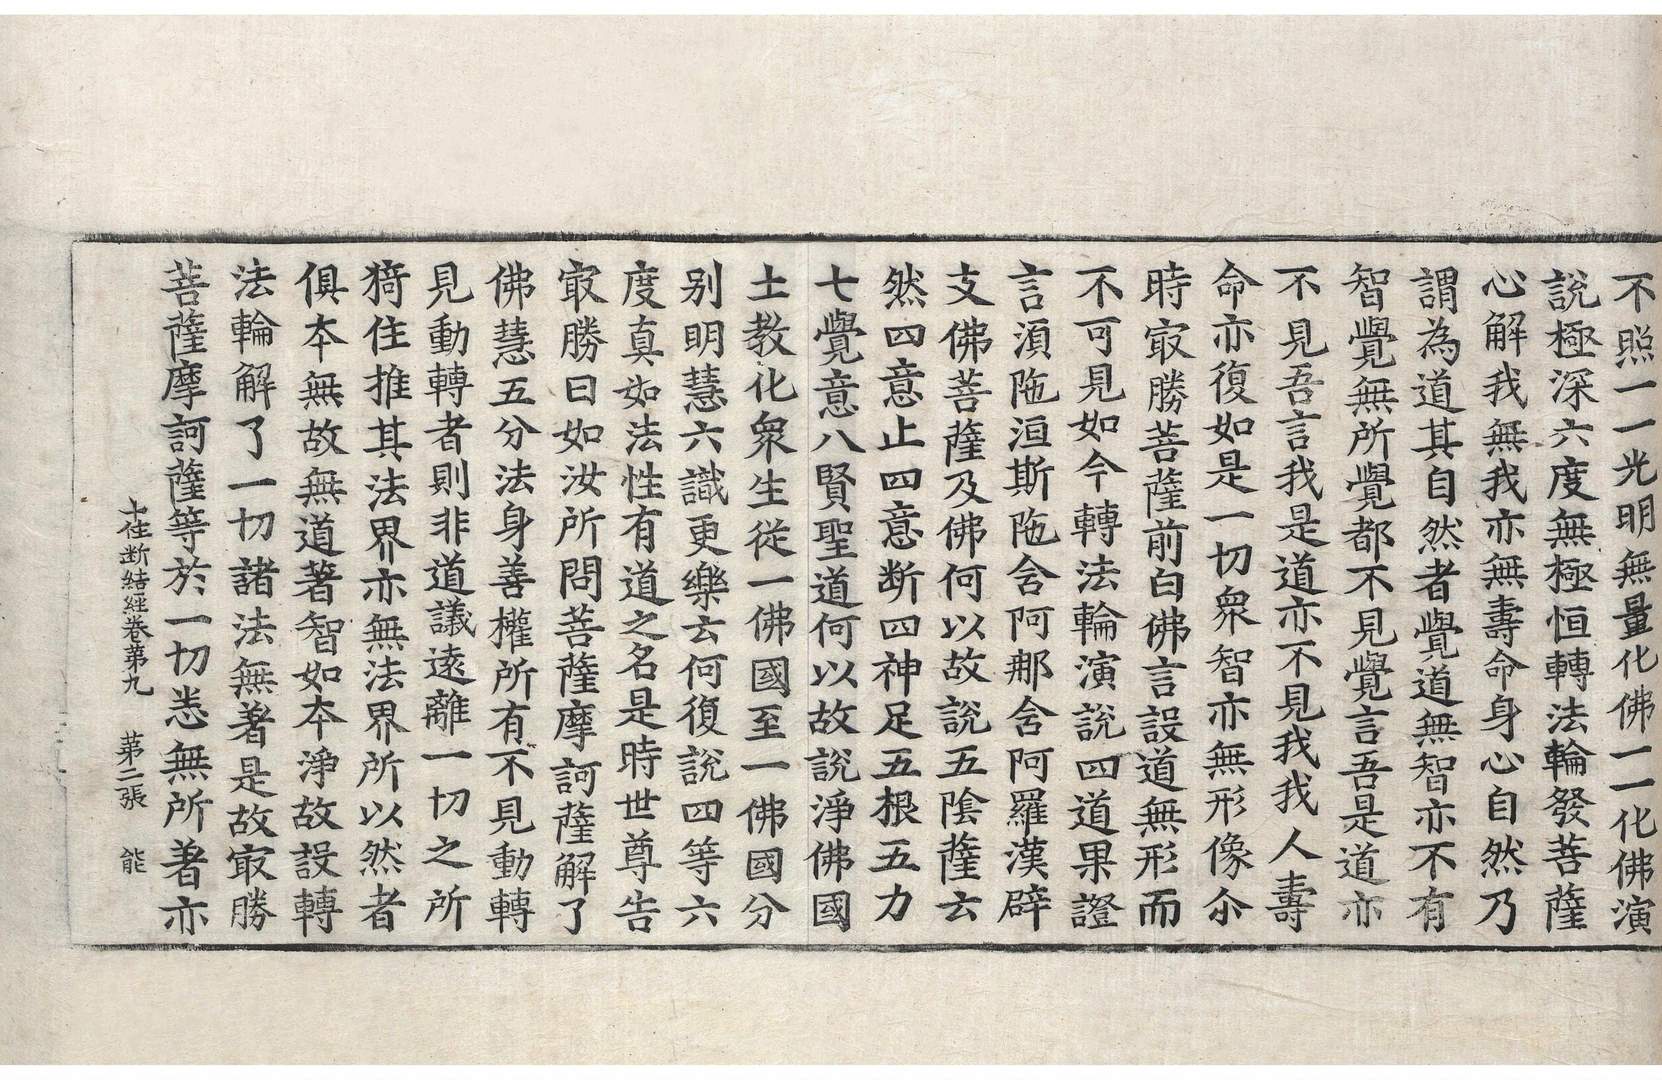 不照一一光明無量化佛一一化佛演
說極深六度無極恒轉法輪發菩薩
心解我無我亦無壽命身心自然乃
謂為道其自然者覺道無智亦不有
智覺無所覺都不見覺言吾是道亦
不見吾言我是道亦不見我我人壽
命亦復如是一切衆智亦無形像尒
時㝡勝菩薩前白佛言設道無形而
不可見如今轉法輪演說四道果證
言湏陁洹斯陁含阿那含阿羅漢辟
支佛菩薩及佛何以故說五陰薩云
然四意止四意断四神足五根五力
七覺意八賢聖道何以故說淨佛國
土教化衆生從一佛國至一佛國分
别明慧六識更樂云何復說四等六
度真如法性有道之名是時世尊告
㝡勝曰如汝所問菩薩摩訶薩解了
佛慧五分法身善權所有不見動轉
見動轉者則非道議遠離一切之所
猗住推其法界亦無法界所以然者
俱夲無故無道著智如夲淨故設轉
法輪解了一切諸法無著是故㝡勝
菩薩摩訶薩等於一切悉無所著亦
十住断結經卷第九 第二張 能